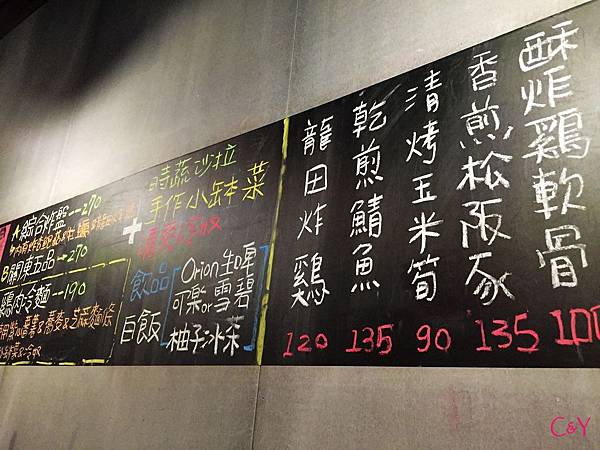 酥炸鷄軟骨 100
香煎松阪豕 135
清烤玉米筍 90
乾煎鯖魚 135
龍田炸鷄 120
時蔬沙拉
手作小缽菜
+
飲品
Orion生啤
可樂or雪碧
柚子冰茶
白飯
A 綜合炸盤--270
B 關東五品→270
鷄肉冷麵--190
C&Y